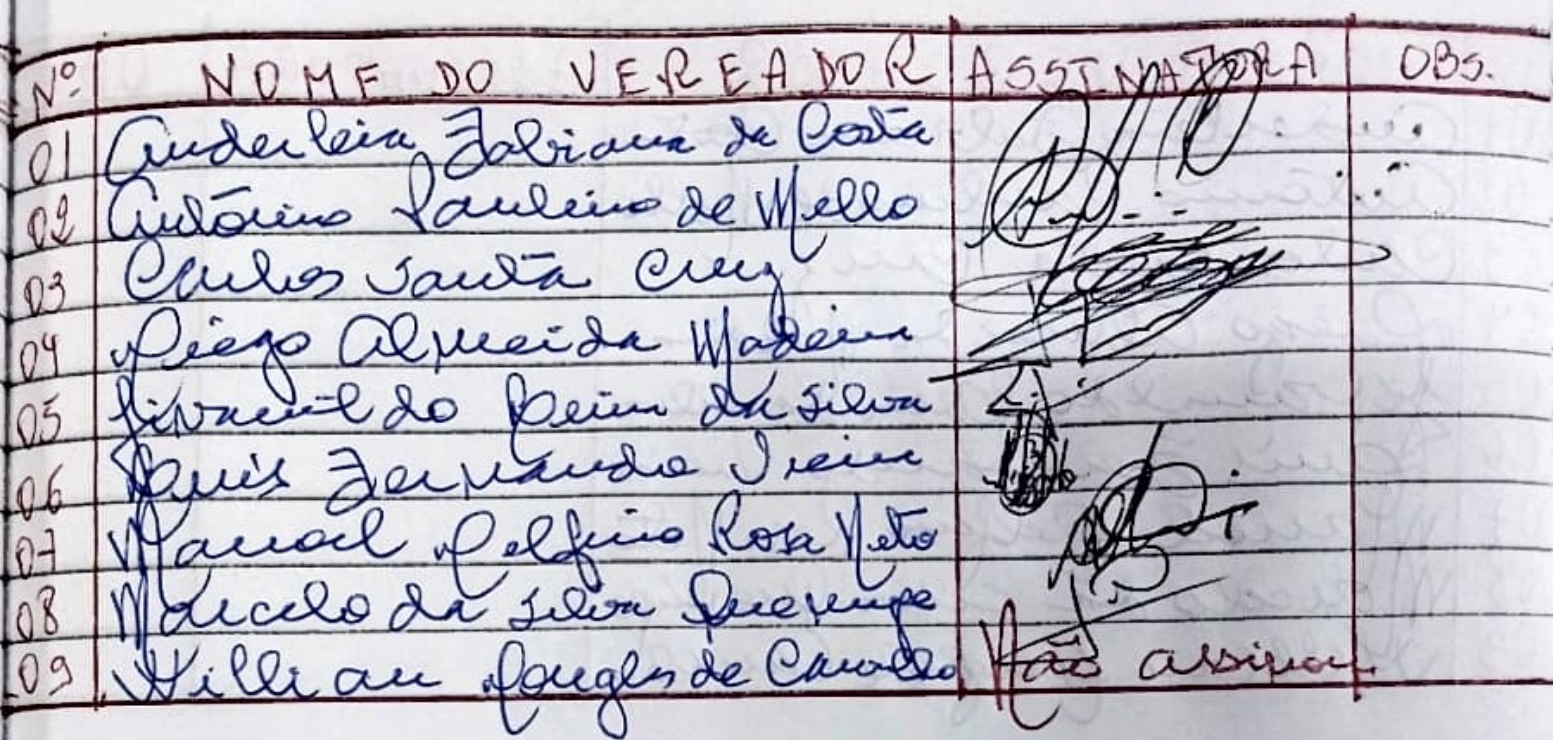 Nº NOME DO VEREADOR ASSINATURA OBS.
01 Anderleia Fabiana da Costa
02 Antônino Paulino de Mello
03 Carlos Santa Cruz
04 Diego Almeida Madeira
05 do da Silva
06 Luis Fernando Vieira
07 Manoel Delfino Rosa Neto
08 Marcelo da Silva
09 Willian Douglas de Carvalho Não assinou